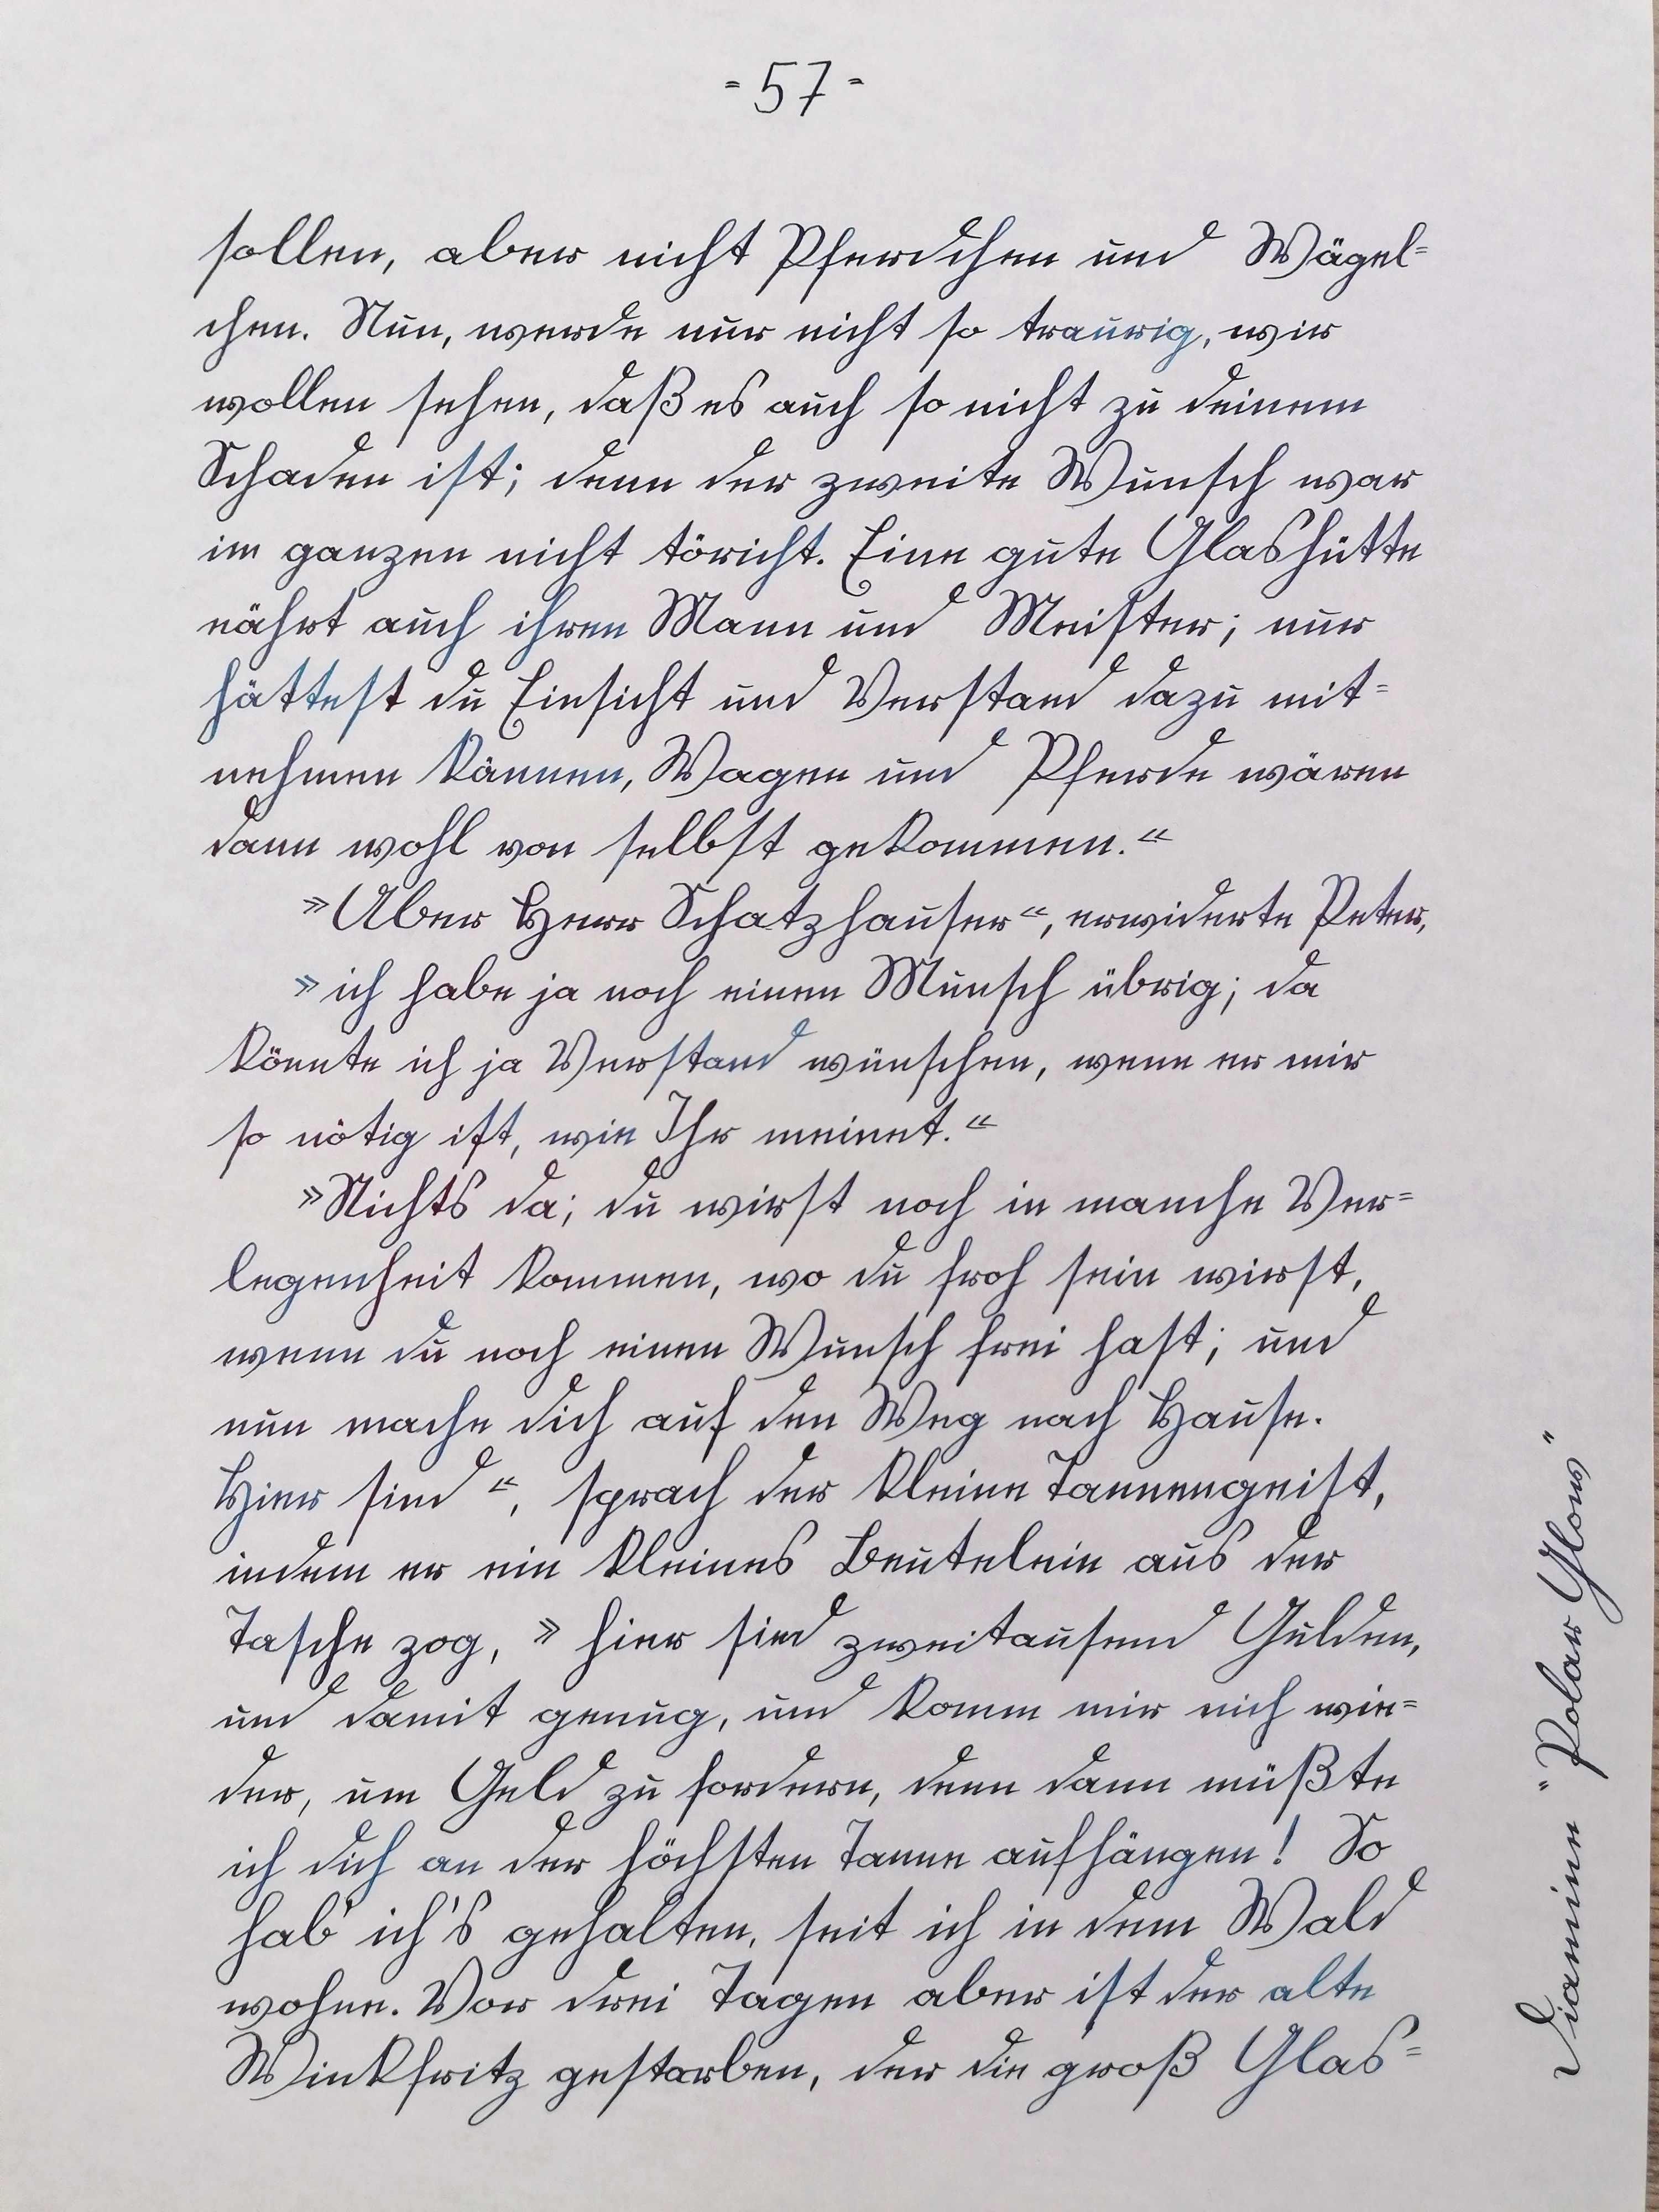 - 57 -
sollen, aber nicht Pferdchen und Wägel-
chen. Nun, werde nur nicht so traurig, wir
wollen sehen, daß es auch so nicht zu deinem
Schaden ist; denn der zweite Wunsch war
im ganzen nicht töricht. Eine gute Glashütte
nährt auch ihren Mann und Meister; nur
hättest du Einsicht und Verstand dazu mit-
nehmen können, Wagen und Pferde wären
dann wohl von selbst gekommen.«
»Aber Herr Schatzhauser«, erwiderte Peter,
»ich habe ja noch einen Wunsch übrig; da
könnte ich ja Verstand wünschen, wenn er mir
so nötig ist, wie Ihr meinet.«
»Nichts da; du wirst noch in manche Ver-
legenheit kommen, wo du froh sein wirst,
wenn du noch einen Wunsch frei hast; und
nun mache dich auf den Weg nach Hause.
Hier sind«, sprach der kleine Tannengeist,
indem er ein kleines Beutelein aus der
Tasche zog, »hier sind zweitausend Gulden,
und damit genug, und komm mir nich wie-
der, um Geld zu fordern, denn dann müßte
ich dich an der höchsten Tanne aufhängen! So
hab' ich's gehalten, seit ich in dem Wald
wohne. Vor drei Tagen aber ist der alte
Winkfritz gestorben, der die groß Glas-
Diamine "Polar Glow"